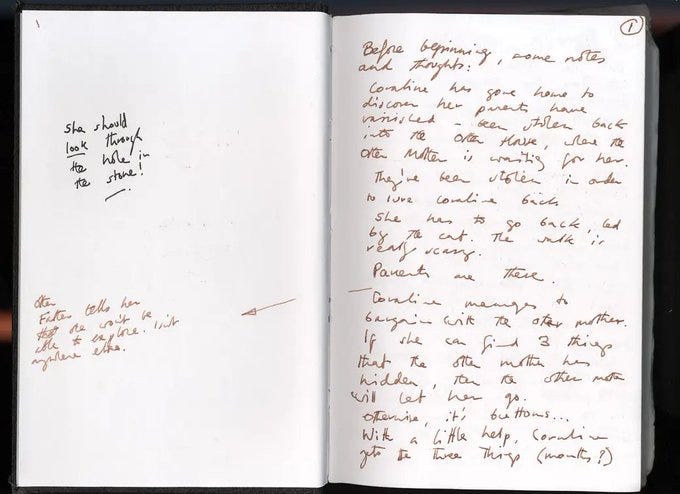 she should
look through
the hole in
the stone!
Other
Father tells her
that she won't be
able to explore. Isn't
anywhere else.
1
Before beginning, some notes
and thoughts:
Coraline has gone home to
discover her parents have
vanished - been stolen back
into the Other House, where the
Other Mother is waiting for her.
They've been stolen in order
to lure Coraline back
She has to go back, led
by the cat. The walk is
really scary.
Parents are there.
Coraline manages to
bargain with the other mother.
If she can find 3 things
that the other mother has
hidden, then the other mother
will let her go.
Otherwise, it's buttons...
With a little help, Coraline
gets the three things